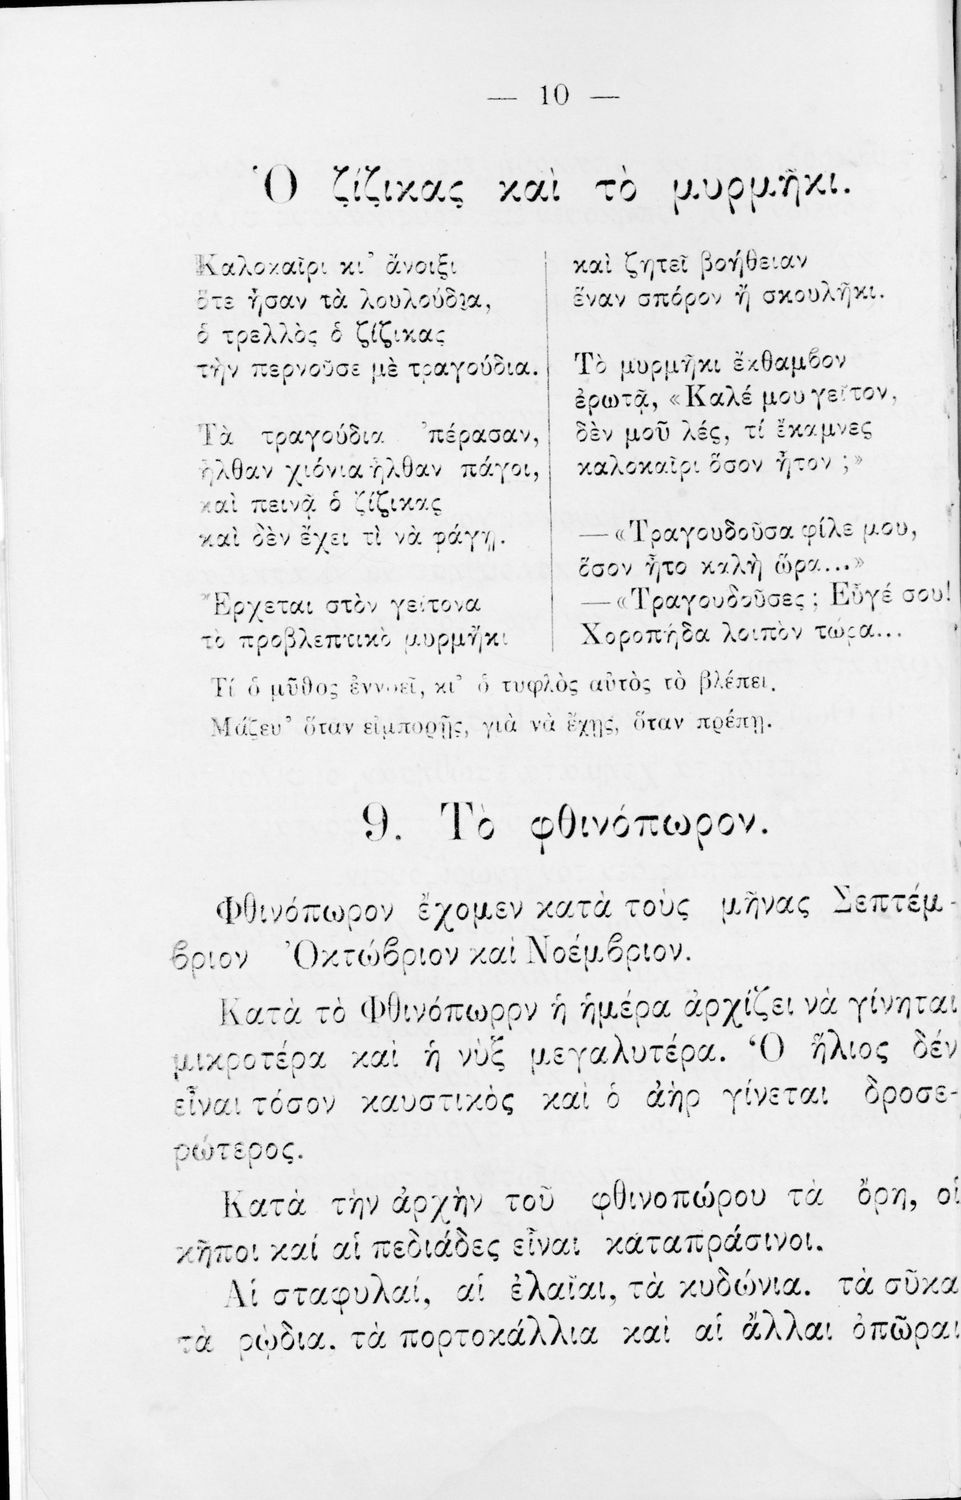 — 10 —
Ὁ ζίζικας καὶ τὸ μυρμῆκι.
Καλοκαῖρι κι᾿ ἄνοιξι
ὅτε ἦσαν τὰ λουλούδια,
ὁ τρελλὸς ὁ ζίζικας
τὴν περνοῦσε μὲ τραγούδια.
Τὰ τραγούδια ᾿πέρασαν,
ἦλθαν χιόνια ἦλθαν πάγοι,
καὶ πεινᾷ ὁ ζίζικας
καὶ δὲν ἔχει τὶ νὰ φάγῃ.
Ἔρχεται στὸν γείτονα
τὸ προβλεπτικὸ μυρμῆκι
καὶ ζητεῖ βοήθειαν
ἕναν σπόρον ἢ σκουλῆκι.
Τὸ μυρμῆκι ἔκθαμβον
ἐρωτᾷ, «Καλέ μου γεῖτον,
δὲν μοῦ λές, τί ἔκαμνες
καλοκαῖρι ὅσον ἦτον ;»
— «Τραγουδοῦσα φίλε μου,
ὅσον ἦτο καλὴ ὥρα...»
— «Τραγουδοῦσες ; Εὖγέ σου!
Χοροπήδα λοιπὸν τώρα...
Τί ὁ μῦθος ἐννοεῖ, κι᾿ ὁ τυφλὸς αὐτὸς τὸ βλέπει.
Μάζευ᾿ ὅταν εἰμπορῇς, γιὰ νὰ ἔχῃς, ὅταν πρέπῃ.
9. Τὸ φθινόπωρον.
Φθινόπωρον ἔχομεν κατὰ τοὺς μῆνας Σεπτέμ-
βριον Ὀκτώβριον καὶ Νοέμβριον.
Κατὰ τὸ Φθινόπωρρν ἡ ἡμέρα ἀρχίζει νὰ γίνηται
μικροτέρα καὶ ἡ νὺξ μεγαλυτέρα. Ὁ ἥλιος δέν
εἶναι τόσον καυστικὸς καὶ ὁ ἀὴρ γίνεται δροσε-
ρώτερος.
Κατὰ τὴν ἀρχὴν τοῦ φθινοπώρου τὰ ὄρη, οἱ
κῆποι καί αἱ πεδιάδες εἶναι καταπράσινοι.
Αἱ σταφυλαί, αἱ ἐλαῖαι, τὰ κυδώνια. τὰ σῦκα
τὰ ρῴδια. τὰ πορτοκάλλια καὶ αἱ ἄλλαι ὀπῶραι